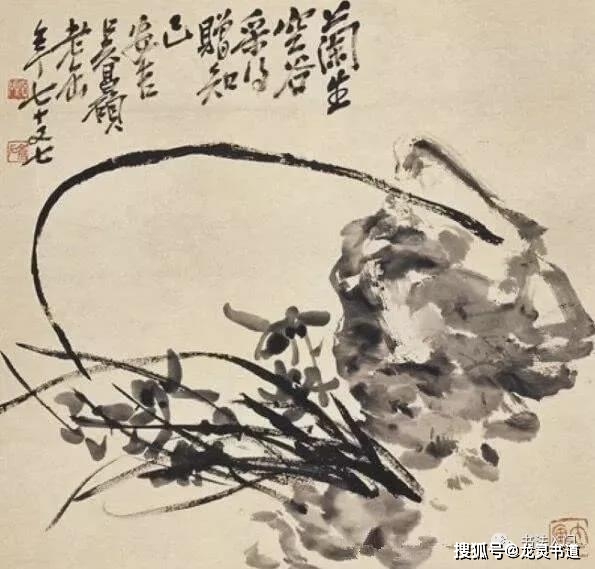 蘭生
空谷
采得
贈知
己
安吉
吳昌碩
老缶
年七十又七
搜狐号@龙灵书道